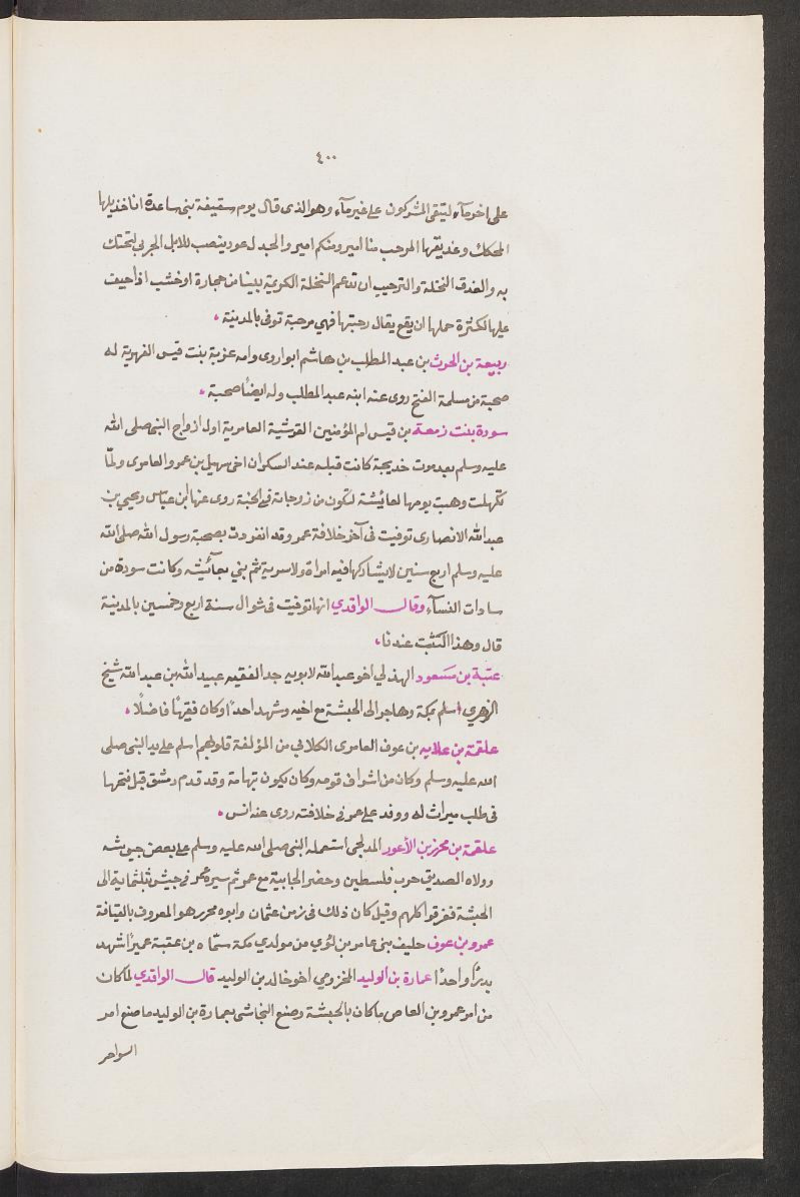 ٤٠٠
على اخر مآء ليتقى المشركون على غير مآء وهو الذى قال يوم سقيفة بنى ساعدة انا خذيلها
المحكك وعذيقها المرحب منا امير ومنكم امير والجدل عود ينصب للابل الجربى لتحتك
به والعذق النخلة والترجيب ان تدعم النخلة الكريمة ببينا من حجارة او خشب اذا خيف
عليها لكثرة حملها ان يقع يقال رجبتها فهي مرجبة توفى بالمدينة
ربيعة بن الحرث بن عبد المطلب بن هاشم ابو اروى وامه عزية بنت قيس الفهرية له
صحبة من مسلمة الفتح روى عنه ابنه عبد المطلب وله ايضًا صحبة
سودة بنت زمعة بن قيس ام المؤمنين القرشية العامرية اول ازواج النبى صلى الله
عليه وسلم بعد موت خديجة كانت قبله عند السكران اخى سهيل بن عمرو العامرى ولمّا
تكهلت وهبت يومها لعائيشة لتكون من زوجاته فى الجنة روى عنها ابن عباس ويحيى بن
عبد الله الانصارى توفيت فى آخر خلافة عمر وقد انفردت بصحبة رسول الله صلى الله
عليه وسلم اربع سنين لايشاركها فيه امراة ولا سرية ثم بنى بعائيشه وكانت سودة من
سادات النسآء وقال الواقدي انها توفيت فى شوال سنة اربع وخمسين بالمدينة
قال وهذا الثبت عندنا
عتبة بن مسعود الهذلي اخو عبد الله لابويه جد الفقيه عبيد الله بن عبد الله شيخ
الزهري اسلم بمكة وهاجر الى الحبشة مع اخيه وشهد احدًا وكان فقيهًا فاضلًا
علقمة بن علايه بن عوف العامرى الكلابي من المؤلفة قلوبهم اسلم على يد النبى صلى
الله عليه وسلم وكان من اشراف قومه وكان يكون بتهامة وقد قدم دمشق قبل فتحها
فى طلب ميراث له ووفد على عمر فى خلافته روى عنه انس
علقمة بن محرز بن الأعور المدلجى استعمله النبى صلى الله عليه وسلم على بعض جيوشه
وولاه الصديق حرب فلسطين وحضر الجابية مع عمر ثم سيره عمر فى جيش ثلثماية الى
الحبشة فغرقوا كلهم وقيل كان ذلك فى زمن عثمان وابوه محرز هو المعروف بالقيافة
عمرو بن عوف حليف بنى عامر بن لؤي من مولدي مكة سمّاه بن عقبة عميرًا شهد
بدرًا واحدًا عمارة بن الوليد المخزومي اخو خالد بن الوليد قال الواقدي لما كان
من امر عمرو بن العاص ماكان بالحبشة وصنع النجاشى بعمارة بن الوليد ما صنع امر
السواحر